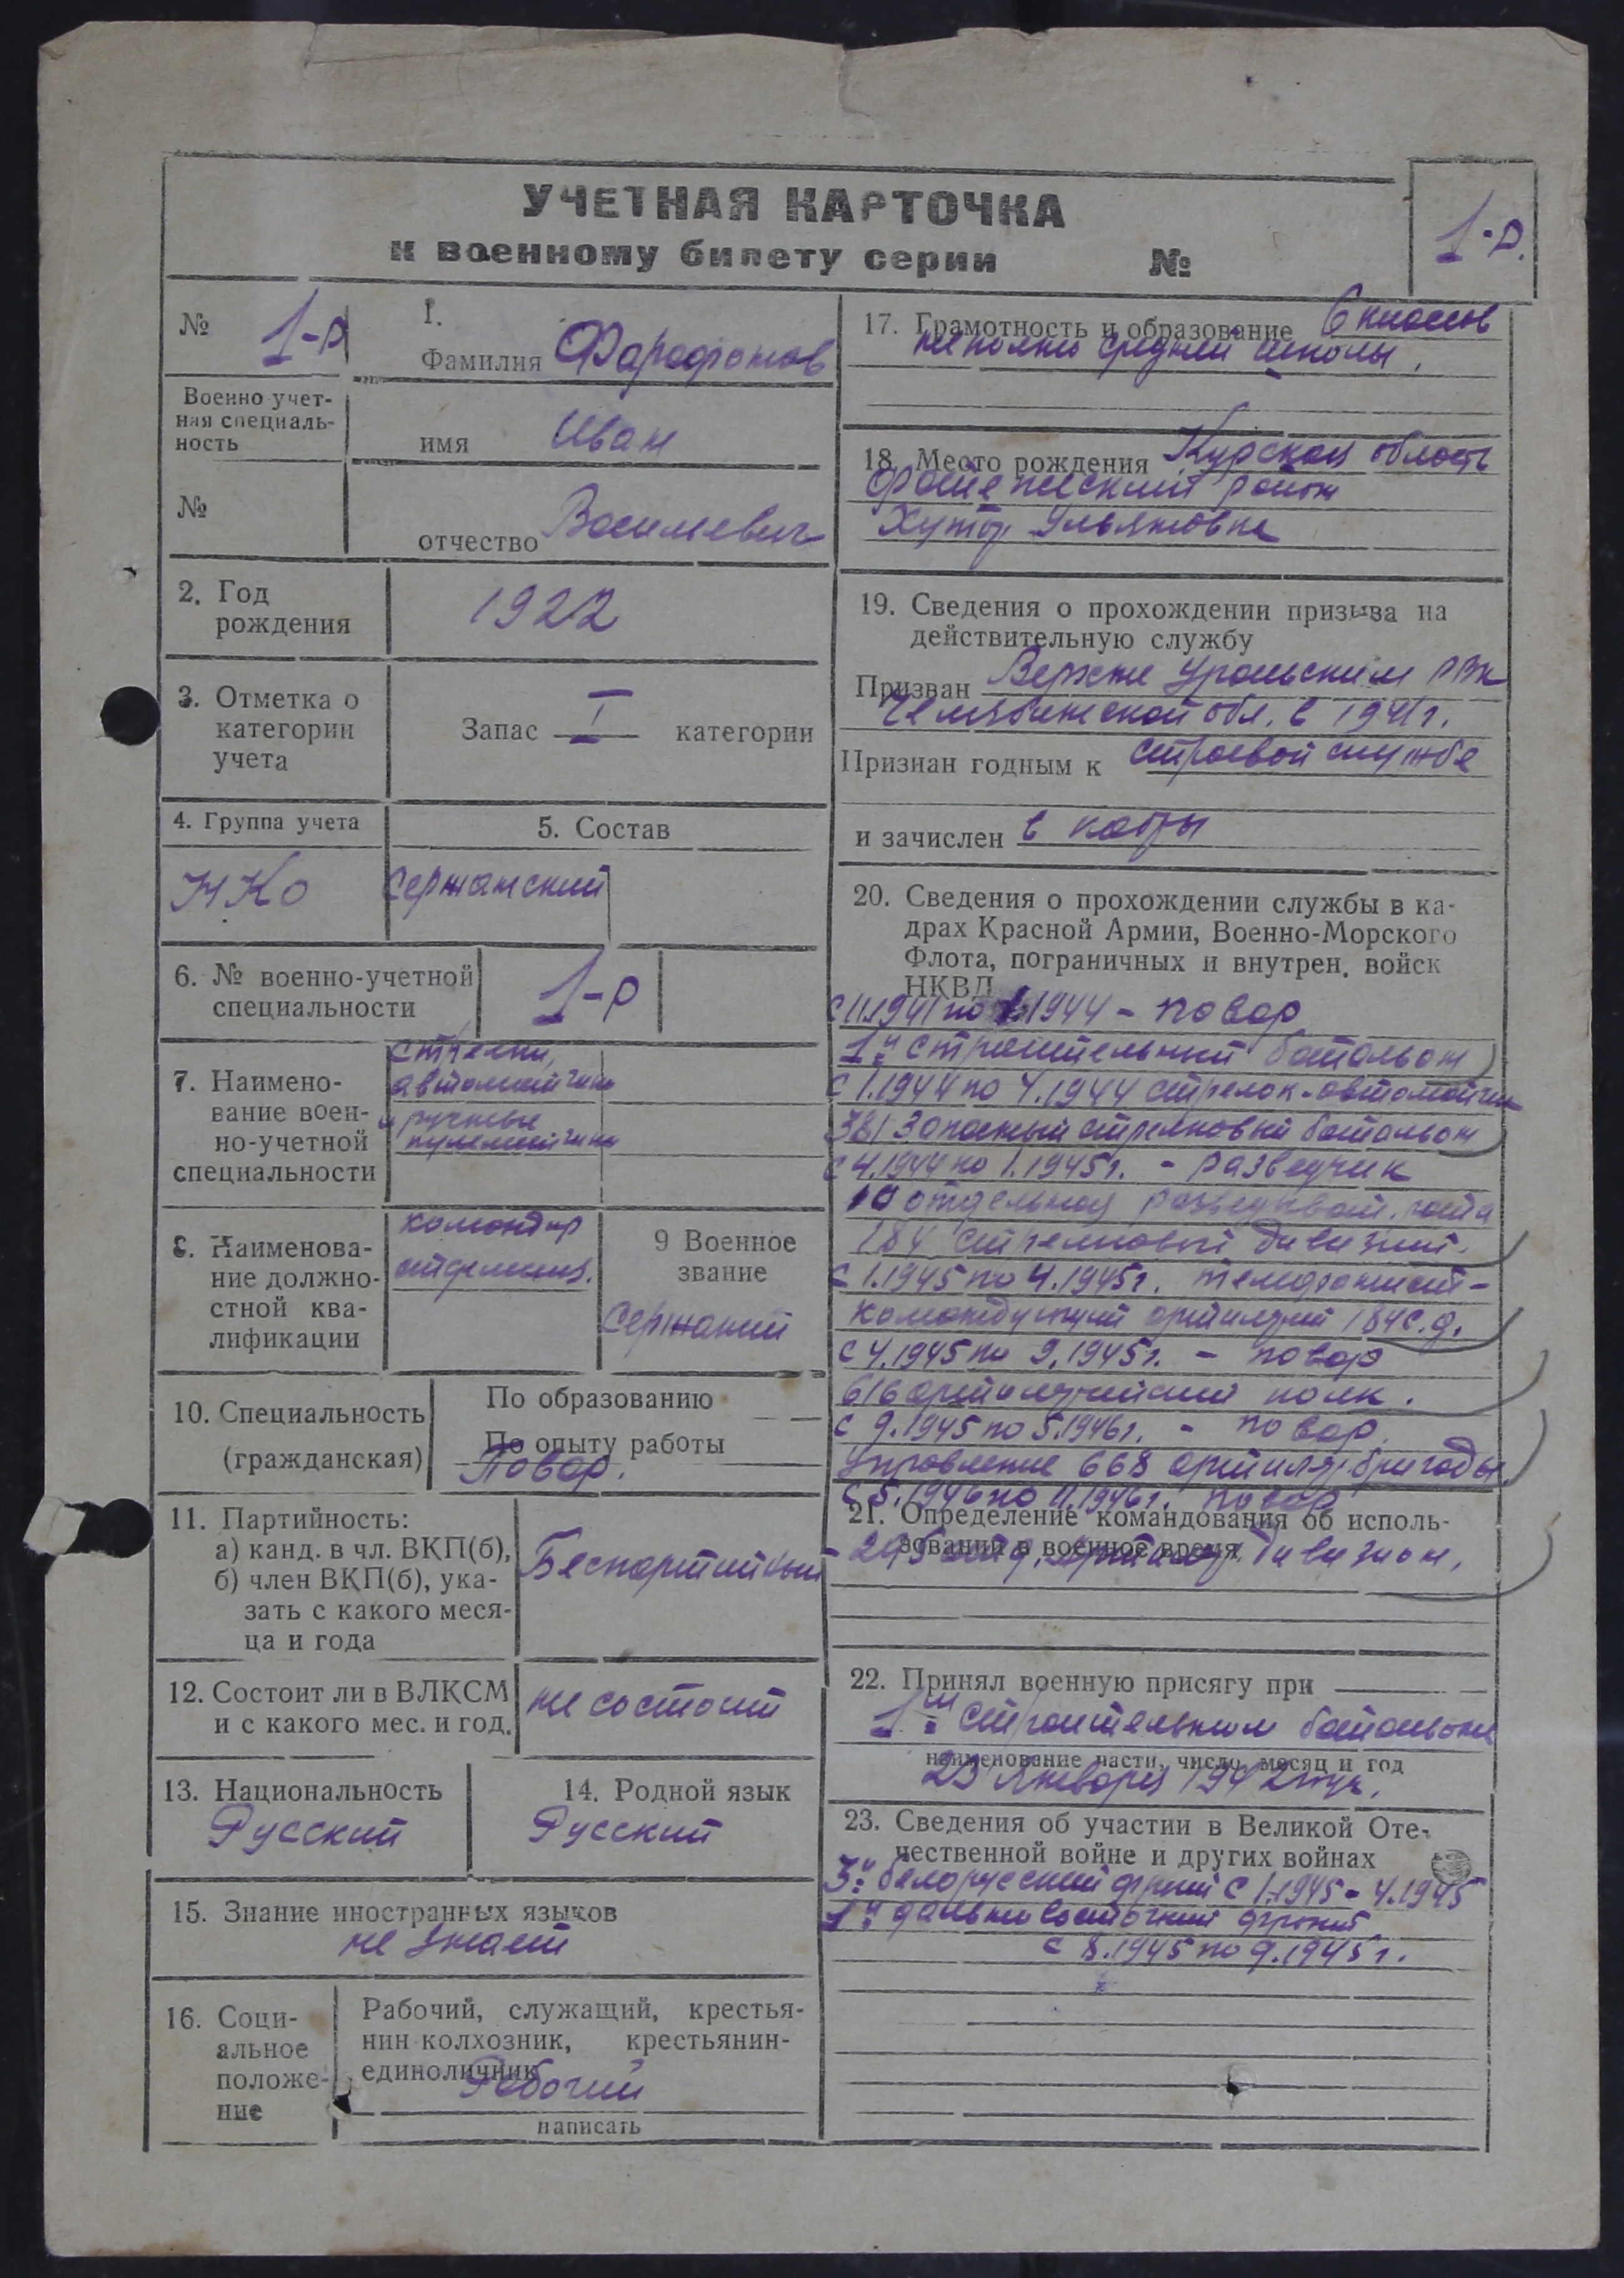 УЧЕТНАЯ КАРТОЧКА
к военному билету серии №
1-р.
№ 1-р
Военно-учет-
ная специаль-
ность
№
1.
Фамилия Фарафонтов
имя Иван
отчество Васильевич
2. Год
рождения
1922
3. Отметка о
категории
учета
Запас I категории
4. Группа учета
НКО
5. Состав
Сержанский
6. № военно-учетной
специальности
1-р
7. Наимено-
вание воен-
но-учетной
специальности
Стрелки,
автоматчики
и ручные
пулеметчики
8. Наименова-
ние должно-
стной ква-
лификации
командир
отделения.
9 Военное
звание
Сержант
10. Специальность
(гражданская)
По образованию — —
По опыту работы
Повар.
11. Партийность:
а) канд. в чл. ВКП(б),
б) член ВКП(б), ука-
зать с какого меся-
ца и года
Беспартийный
12. Состоит ли в ВЛКСМ
и с какого мес. и год.
не состоит
13. Национальность
Русский
14. Родной язык
Русский
15. Знание иностранных языков
не знает
16. Соци-
альное
положе-
ние
Рабочий, служащий, крестья-
нин-колхозник, крестьянин-
единоличник
Рабочий
написать
17. Грамотность и образование 6 классов
неполно средней школы.
18. Место рождения Курская область
Фатежский район
Хутор Ульяновка
19. Сведения о прохождении призыва на
действительную службу
Призван Верхне Уральским РВК
Челябинской обл. в 1941г.
Признан годным к строевой службе
и зачислен в кадры
20. Сведения о прохождении службы в ка-
драх Красной Армии, Военно-Морского
Флота, пограничных и внутрен. войск
НКВД
с 11.1941 по 1.1944 - повар
1й строительный батальон
с 1.1944 по 4.1944 стрелок-автоматчик
381 Запасный стрелковый батальон
с 4.1944 по 1.1945г. - разведчик
10 отдельная разведыват. рота
184 стрелковый дивизии.
с 1.1945 по 4.1945г. телефонист-
командующий артилерий 184 с.д.
с 4.1945 по 9.1945г. - повар
616 артилерийский полк.
с 9.1945 по 5.1946г. - повар.
Управление 668 артилер. бригады
с 5.1946 по 11.1946г. повар
21. Определение командования об исполь-
зований в военное время
дивизион.
22. Принял военную присягу при
1м строительном батальоне
наименование части, число, месяц и год
23 Января 1942 году.
23. Сведения об участии в Великой Оте-
чественной войне и других войнах
3й белорусский фронт с 1.1945 - 4.1945
1й дальневосточный фронт
с 8.1945 по 9.1945г.